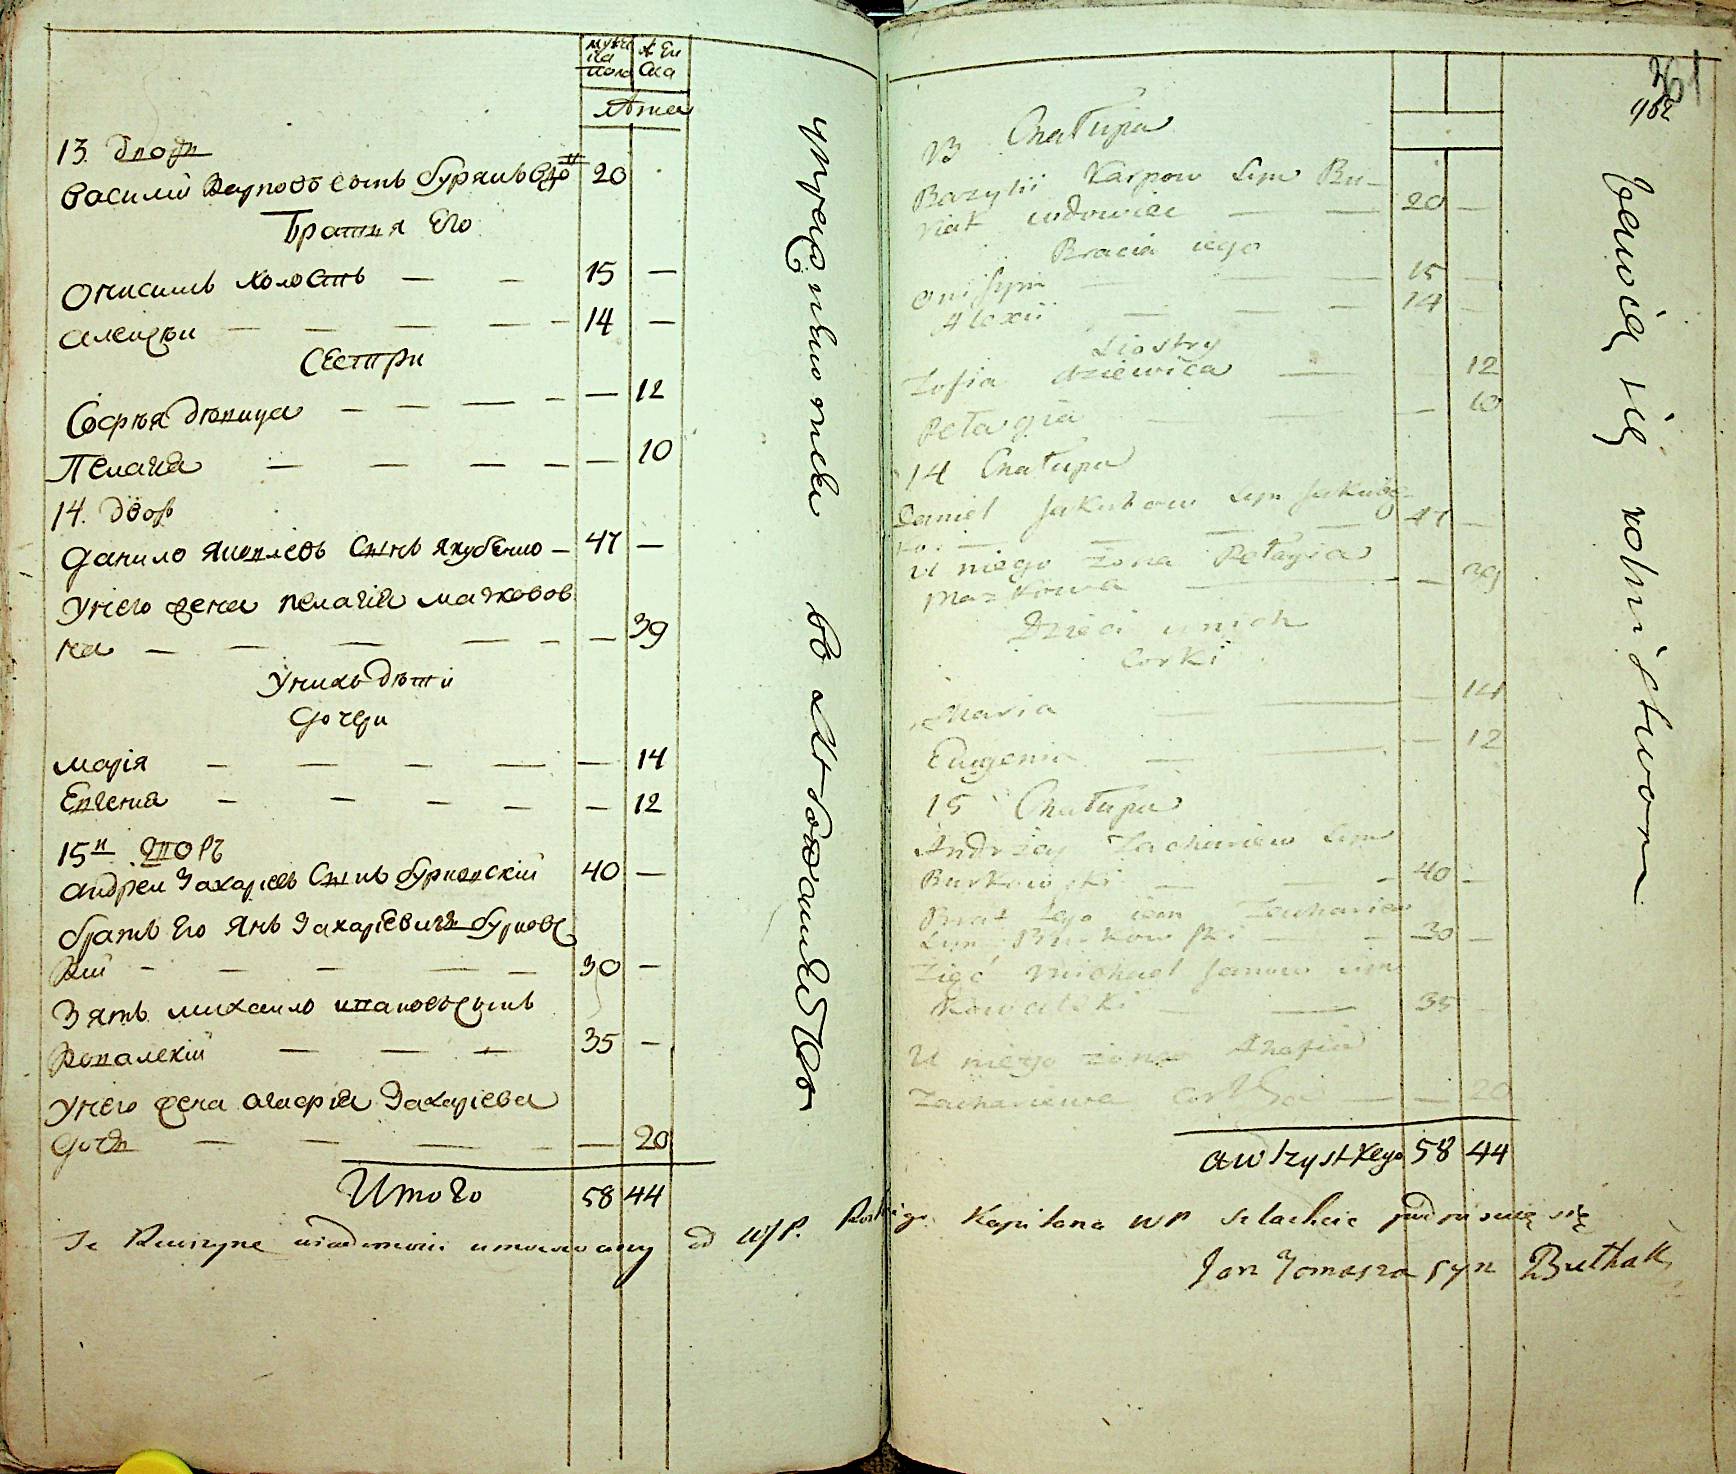 мужеска пола
женска
Лета
13. двор
Василий Карповъ сынъ Бурякъ вдо
20
Братья Его
Онисимъ холостъ — — 15 —
Алексѣи — — — — — 14 —
Сестри
Софъя дѣвица — — — — — 12
Пелагія — — — — — 10
14. двор
Данило Яковлевъ Сынъ Якубенко — 47 —
У него жена Пелагія Марковов
на — — — — — — 39
У нихъ дѣти
Дочери
Марія — — — — — 14
Евгения — — — — — 12
15й дворъ
Андреи Захаріевъ Сынъ Бурковскій 40 —
братъ Его Янъ Захаріевичъ Бурковс
кій — — — — — 30 —
Зять Михаило Ивановъ Сынъ
Ковалскій — — — 35 —
У него жена Агафія Захаріева
дочь — — — — — 20
Итого 58 44
упражнѣютси во хлѣбопашествѣ
361
962
13 Chałupa
Bazylii Karpow Syn Bu-
riak wdowiec — — 20 —
Bracia iego
Onisym — — 15 —
Alexii — — — 14 —
Siostry
Zofia dziewica — — 12
Pelagia — — — 10
14 Chałupa
Daniel Jakubow Syn Jakube
— — — 47 —
U niego żona Pelagia
Markowa — — — 39
Dzieci u nich
Corki
Maria — — — 14
Eugenia — — — 12
15 Chałupa
Andrzey Zachariew Syn
Burkowski — — — 40 —
Brat Iego Zachariew
Syn Burkowski — — 30 —
Zięć Michael Janow syn
Kowalski — — 35 —
U niego żona Ahafia
Zachariewa Corka — — 20
a wszystkego 58 44
bawią się rolnistwom
Kapitana WP Szlachcic podpisuię się
Jan Tomasza syn Bułhak